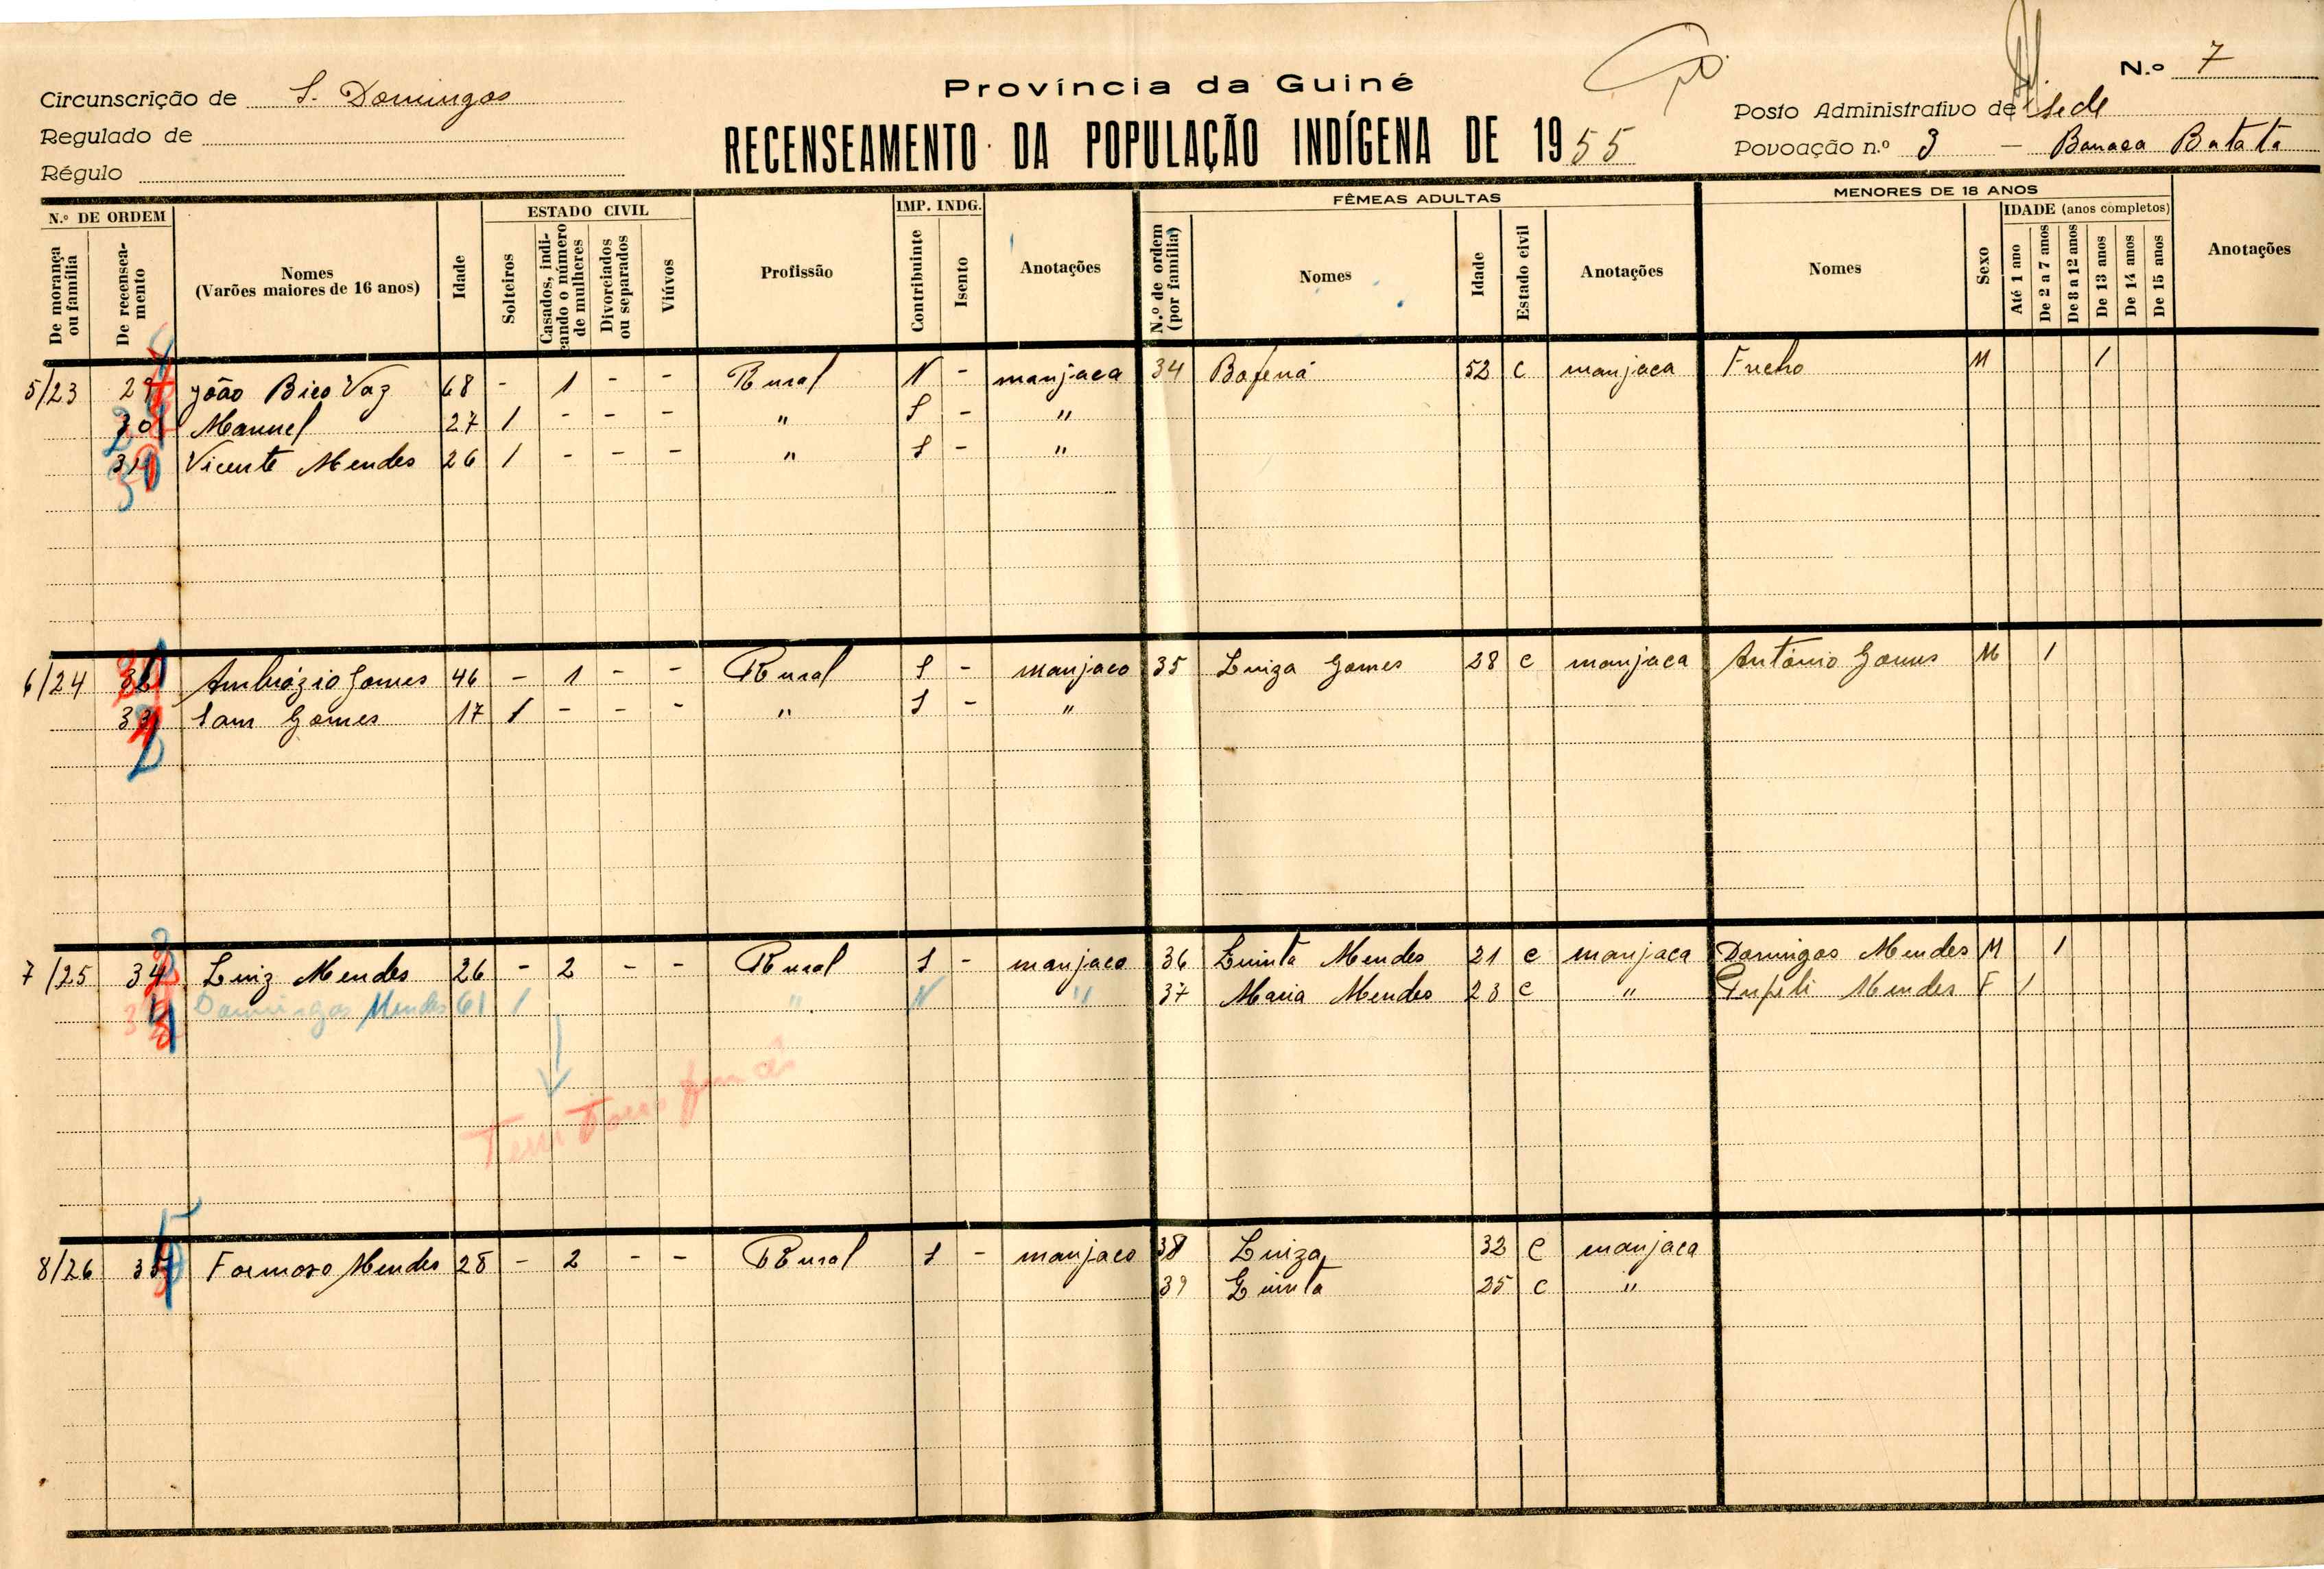 Província da Guiné
RECENSEAMENTO DA POPULAÇÃO INDÍGENA DE 1955
N.º 7
Circunscrição de S. Domingos
Regulado de
Régulo
Posto Administrativo de Sede
Povoação n.º 3 — Banaca Batata
N.º DE ORDEM
De morança ou família
De recenseamento
Nomes
(Varões maiores de 16 anos)
Idade
ESTADO CIVIL
Solteiros
Casados, indicando o número de mulheres
Divorciados ou separados
Viúvos
Profissão
IMP. INDG.
Contribuinte
Isento
Anotações
FÊMEAS ADULTAS
N.º de ordem (por família)
Nomes
Idade
Estado civil
Anotações
MENORES DE 18 ANOS
Nomes
Sexo
IDADE (anos completos)
Até 1 ano
De 2 a 7 anos
De 8 a 12 anos
De 13 anos
De 14 anos
De 15 anos
Anotações
5/23 29 João Bico Vaz 68 - 1 - - Rural N - manjaca 34 Bafená 52 C manjaca M 1
30 Manuel 27 1 - - - " S - "
31 Vicente Mendes 26 1 - - - " S - "
6/24 Ambrózio Gomes 46 - 1 - - Rural S - manjaco 35 Luiza Gomes 28 C manjaca António Gomes M 1
33 Sam Gomes 17 1 - - - " S - "
7/25 34 Luiz Mendes 26 - 2 - - Rural S - manjaco 36 Quinta Mendes 21 C manjaca Domingos Mendes M 1
Domingos Mendes 61 1 " N " 37 Maria Mendes 23 C " Mendes F 1
Tem
8/26 35 Formoso Mendes 28 - 2 - - Rural S - manjaco 38 Luiza 32 C manjaca
39 Quinta 25 C "